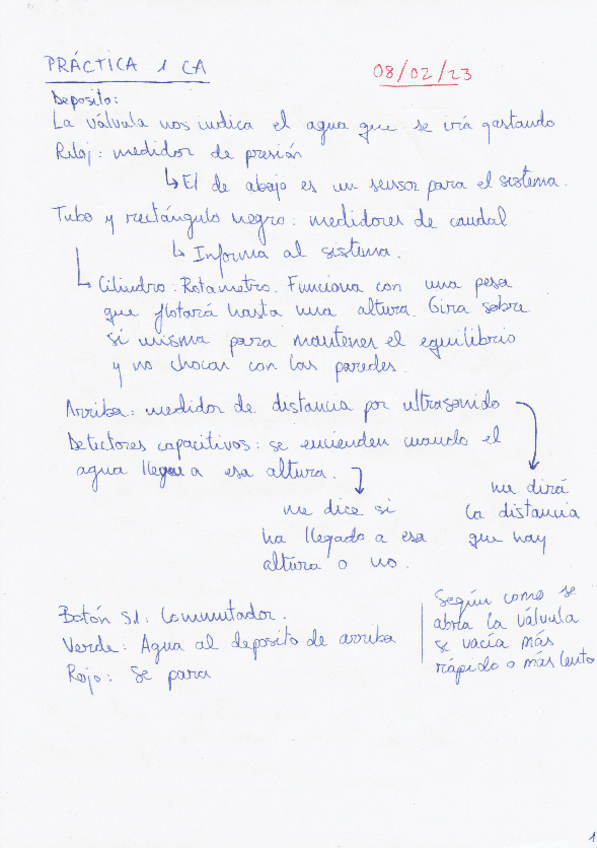 PRÁCTICA 1 CA
08/02/23
Deposito:
La válvula nos indica el agua que se irá gastando
Reloj: medidor de presión
↳ El de abajo es un sensor para el sistema.
Tubo y rectángulo negro: medidores de caudal
↳ Informa al sistema.
↳ Cilindro: Rotametro. Funciona con una pesa
que flotará hasta una altura. Gira sobre
si misma para mantener el equilibrio
y no chocar con las paredes.
Arriba: medidor de distancia por ultrasonido
Detectores capacitivos: se encienden cuando el
agua llegue a esa altura.
me dice si
ha llegado a esa
altura o no.
me dirá
la distancia
que hay
Botón S1: Conmutador.
Verde: Agua al deposito de arriba
Rojo: Se para
Según como se
abra la válvula
se vacía más
rápido o más lento
1